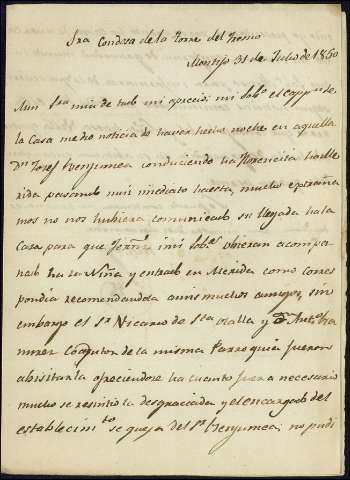 Sra Condesa de la Torre del Fresno
Montijo 31 de Julio de 1850
Muy Sra mia de todo mi aprecio: mi Sobo el
la Casa me dio noticia de haver hecho noche en aquella
Dn Josef Benjumea conduciendo ha Florencita ha Me
rida pasando mui inmediato ha esta, mucho extraña
mos no nos hubiera comunicado su llegada ha la
Casa para que Jno mi Sobo ubieran acompa
ñado ha su Niña y entrado en Merida como corres
pondia recomendandola a mis muchos amigos, sin
embargo el Sr Vicario de Sta olalla y Dn Anto
Coadjutor de la misma Parroquia fueron
ha visitarla ofreciendose ha cuanto fuera necesario
mucho se resintio la desgraciada y el encargado del
establecimto se queja del Sr Benjumea; no pudi